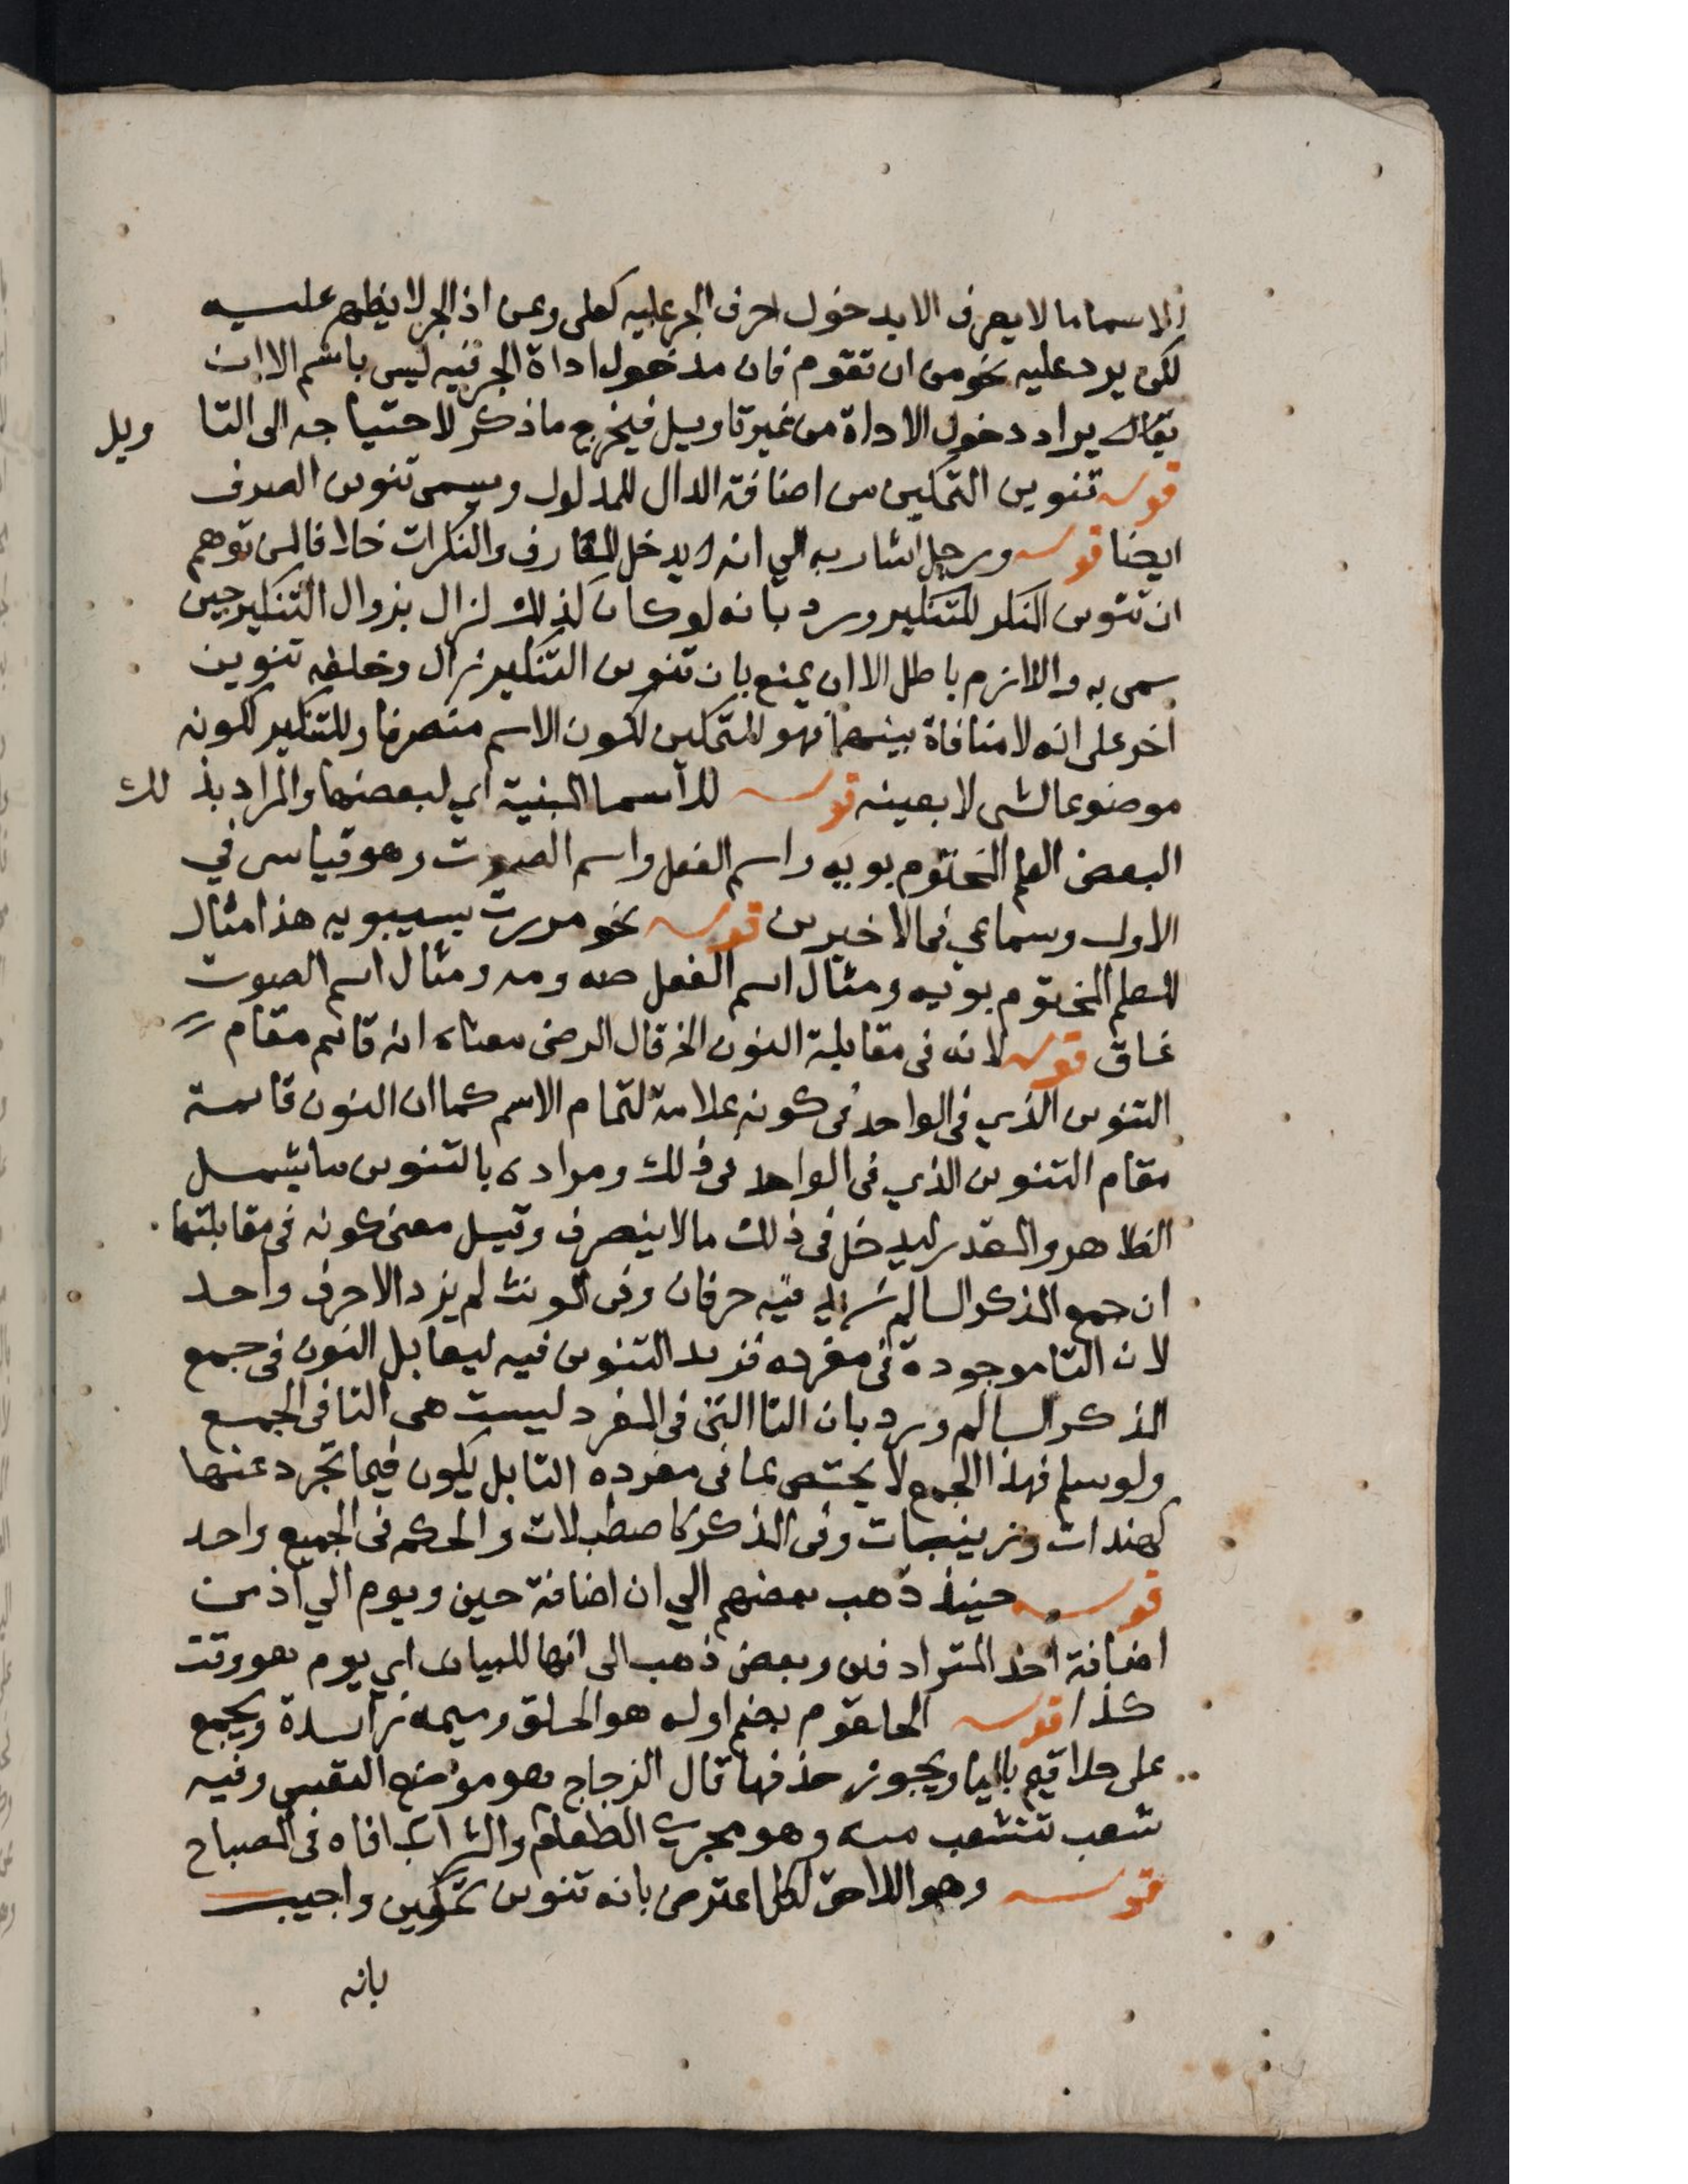 الاسما ما لا يعرف الا بدخول احرف الجر عليه كعلى وعن اذ الجر لا يظهر عليه
لكن يرد عليه نحو من ان تقوم فان مدخول اداة الجر فيه ليس باسم الا ان
يقال يراد دخول الاداة من غير تاويل فيخرج ما ذكر لاحتياجه الى التاويل
قوله تنوين التمكين من اضافة الدال للمدلول ويسمى تنوين الصرف
ايضا قوله ورجل اشار به الي انه يدخل المعارف والنكرات خلافا لمن توهم
ان تنوين النكر للتنكير ورد بانه لو كان كذلك لزال بزوال التنكير حين
سمى به واللازم باطل الا ان يمنع بان تنوين التنكير زال وخلفه تنوين
اخر على انه لا منافاة بينهما فهو للتمكين لكون الاسم منصرفا وللتنكير لكونه
موضوعا لشى لا بعينه قوله للاسما المبنية اي لبعضها والمراد بذلك
البعض العلم المختوم بويه واسم الفعل واسم الصوت وهو قياس في
الاول وسماعي في الاخيرين قوله نحو مررت بسيبويه هذا مثال
للعلم المختوم بويه ومثال اسم الفعل صه ومه ومثال اسم الصوت
غاق قوله لانه فى مقابلة النون الخ قال الرضى معناه انه قائم مقام
التنوين الذي فى الواحد فى كونه علامة لتمام الاسم كما ان النون قائمة
مقام التنوين الذي فى الواحد فى ذلك ومراده بالتنوين ما يشمل
الظاهر والمقدر ليدخل فى ذلك ما لا ينصرف وقيل معنى كونه فى مقابلتها
ان جمع المذكر السالم زيد فيه حرفان وفى المونث لم يزد الا حرف واحد
لان التا موجودة فى مفرده فزيد التنوين فيه ليقابل النون فى جمع
المذكر السالم ورد بان التا التى فى المفرد ليست هى التا فى الجمع
ولو سلم فهذا الجمع لا يختص بما فى مفرده التا بل يكون فيما تجرد عنها
كهندات وزينبات وفى المذكر كاصطبلات والحكم فى الجميع واحد
قوله حينئذ ذهب بعضهم الي ان اضافة حين ويوم الي اذ من
اضافة احد المترادفين وبعض ذهب الى انها للبيان اي يوم هو وقت
كذا قوله الحلقوم بضم اوله هو الحلق وميمه زائدة ويجمع
على حلاقيم باليا ويجوز حذفها قال الزجاج هو موضع النفس وفيه
شعب تتشعب منه وهو مجري الطعام والشراب افاده فى المصباح
قوله وهو اللاحق لكل اعترض بانه تنوين تمكين واجيب
بانه